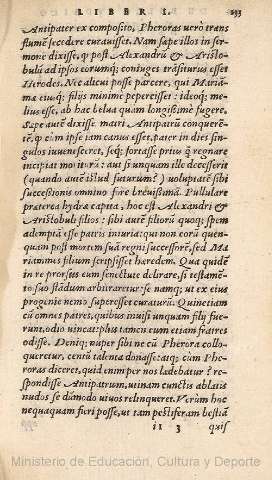 LIBER I. 233
Antipater ex composito, Pheroras uerò trans
flumē secedere curauisset. Nam sæpe illos in ser
mone dixisse, ꝙ post Alexandrū & Aristo⸗
bulū ad ipsos eorumq́; coniuges trāsiturus esset
Herodes. Nec alicui posse parcere, qui Mariā⸗
mæ eiusq́; filijs minimè pepercisset: ideoq́; me⸗
lius esse, ab hac belua quàm longissimè fugere.
Sæpe autē dixisse matri Antipatrū conquerē⸗
tē, ꝙ cùm ipse iam canus esset, pater in dies sin⸗
gulos iuuenesceret, seq́; fortasse prius q̃ regnare
incipiat moriturū: aut si unquam ille decesserit
(quando autē istud futurum?) uoluptatē sibi
successionis omnino fore breuissimā. Pullulare
præterea hydræ capita, hoc est Alexandri &
Aristobuli filios: sibi autē filiorū quoq́; spem
ademptā esse patris iniuria: qui non eorū quen⸗
quam post mortem suā regni successorē, sed Ma
riammes filium scripsisset hæredem. Qua quidē
in re prorsus eum senectute delirare, si testamē⸗
to suo stādum arbitraretur: se namq́; ut ex eius
progenie nemo superesset curaturū. Quinetiam
cū omnes patres, quibus inuisi unquam filij fue⸗
runt, odio uincat: plus tamen eum etiam fratres
odisse. Deniq́; nuper sibi ne cū Pherora collo⸗
queretur, centū talenta donasse: atq́; cùm Phe⸗
roras diceret, quid enim per nos lædebatur? re⸗
spondisse Antipatrum, utinam cunctis ablatis
nudos se dūmodo uiuos relinqueret. Verùm hoc
nequaquam fieri posse, ut tam pestiferam bestiā
ii 3 quis
Ministerio de Educación, Cultura y Deporte